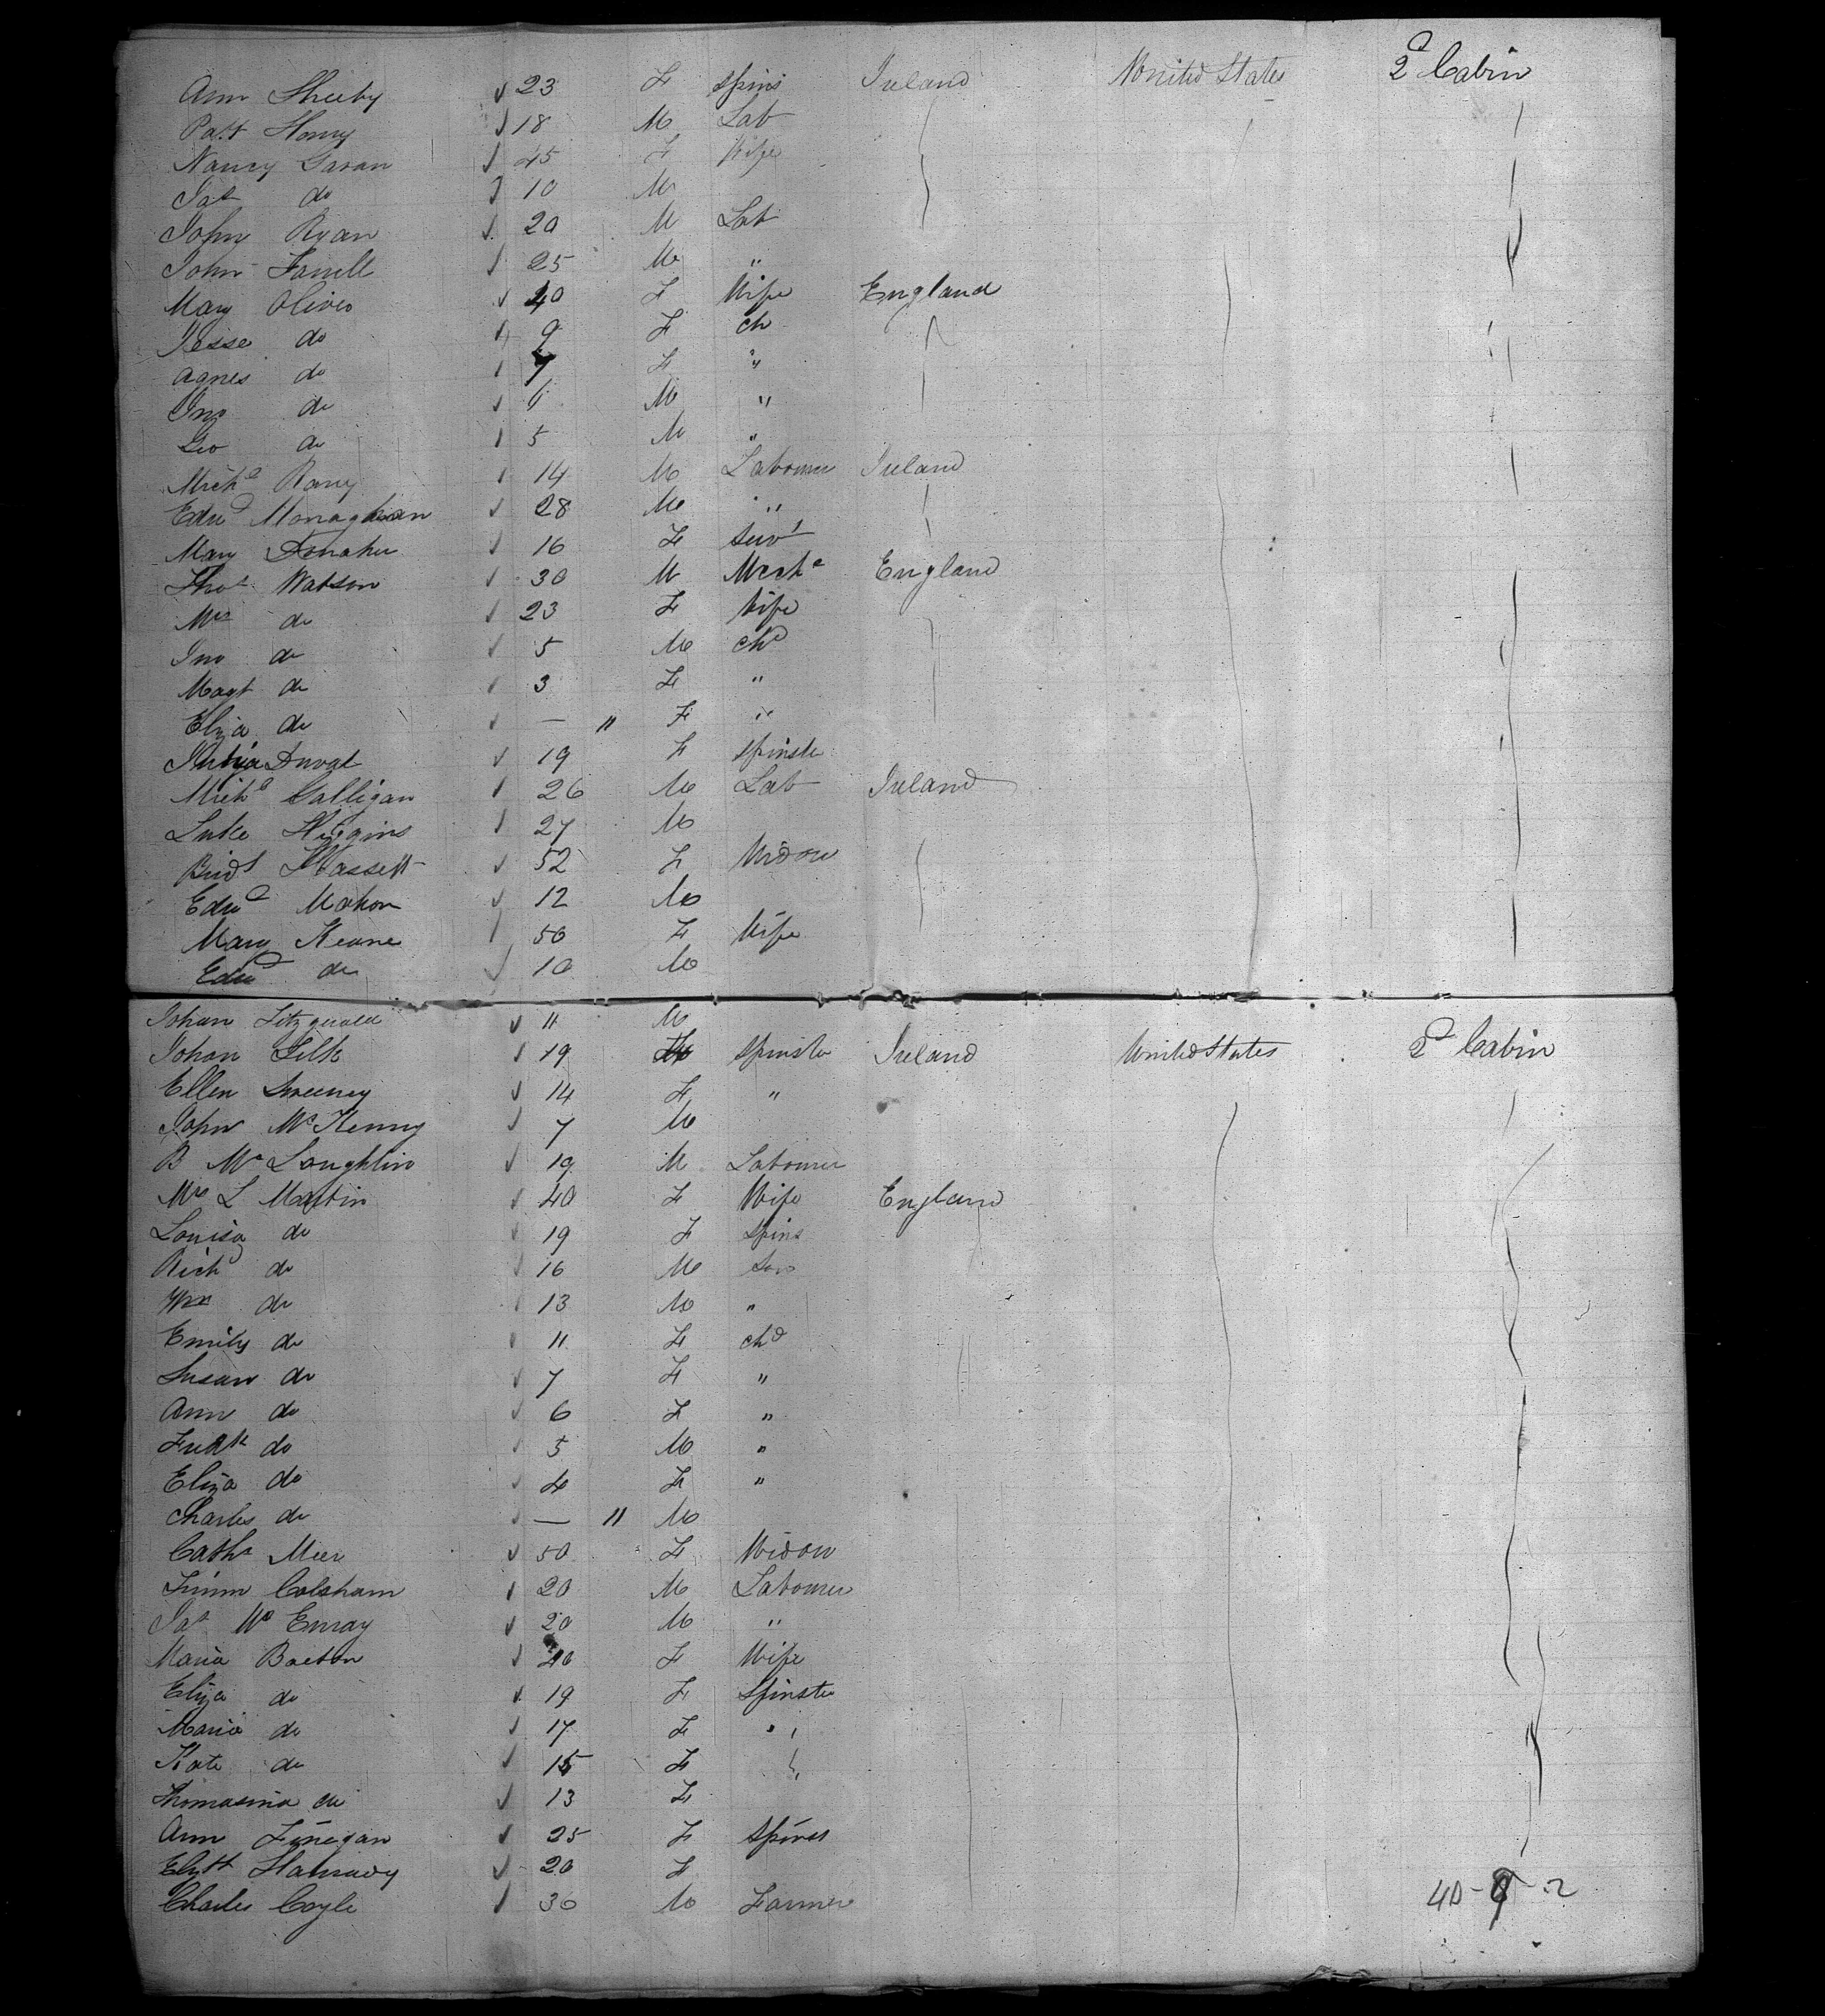 Ann Sheeby 23 F Spins Ireland United States 2d Cabin
Patt Henry 18 M Lab
Nancy Garan 45 F Wife
Pat do 10 M
John Ryan 20 M Lab
John Farrell 25 M "
Mary Oliver 40 F Wife England
Jesse do 9 F ch
Agnes do 7 F "
Jno do 6 M "
Geo do 5 M "
Michl Rany 14 M Labourer Ireland
Edwd Monaghan 28 M "
Mary Donahu 16 F Servt
Thos Watson 30 M Mech England
Mrs do 23 F Wife
Jno do 5 M chd
Magt do 3 F "
Eliza do — " F "
Julia Duval 19 F Spinster
Michl Galligan 26 M Lab Ireland
Luke Higgins 27 M
Bridt Hassett 52 F Widow
Edwd Mahon 12 M
Mary Keane 50 F Wife
Edwd do 10 M
Johan Fitzgerald 11 M
Johan Silk 19 F Spinster Ireland United States 2d Cabin
Ellen Sweeney 14 F "
John McKenny 7 M
B McLoughlin 19 M Labourer
Mrs L Martin 40 F Wife England
Louisa do 19 F Spins
Richd do 16 M Son
Wm do 13 M "
Emily do 11 F chd
Susan do 7 F "
Ann do 6 F "
Fredk do 5 M "
Eliza do 4 F "
Charles do — " M
Cathe Meer 50 F Widow
Colsham 20 M Labourer
Jas McEnray 20 M "
Maria Baeton 40 F Wife
Eliza do 19 F Spinster
Maria do 17 F "
Kate do 15 F "
Thomasina do 13 F
Ann Finegan 25 F Spins
Elizth 20 F
Charles Coyle 30 M Farmer 40-9-2